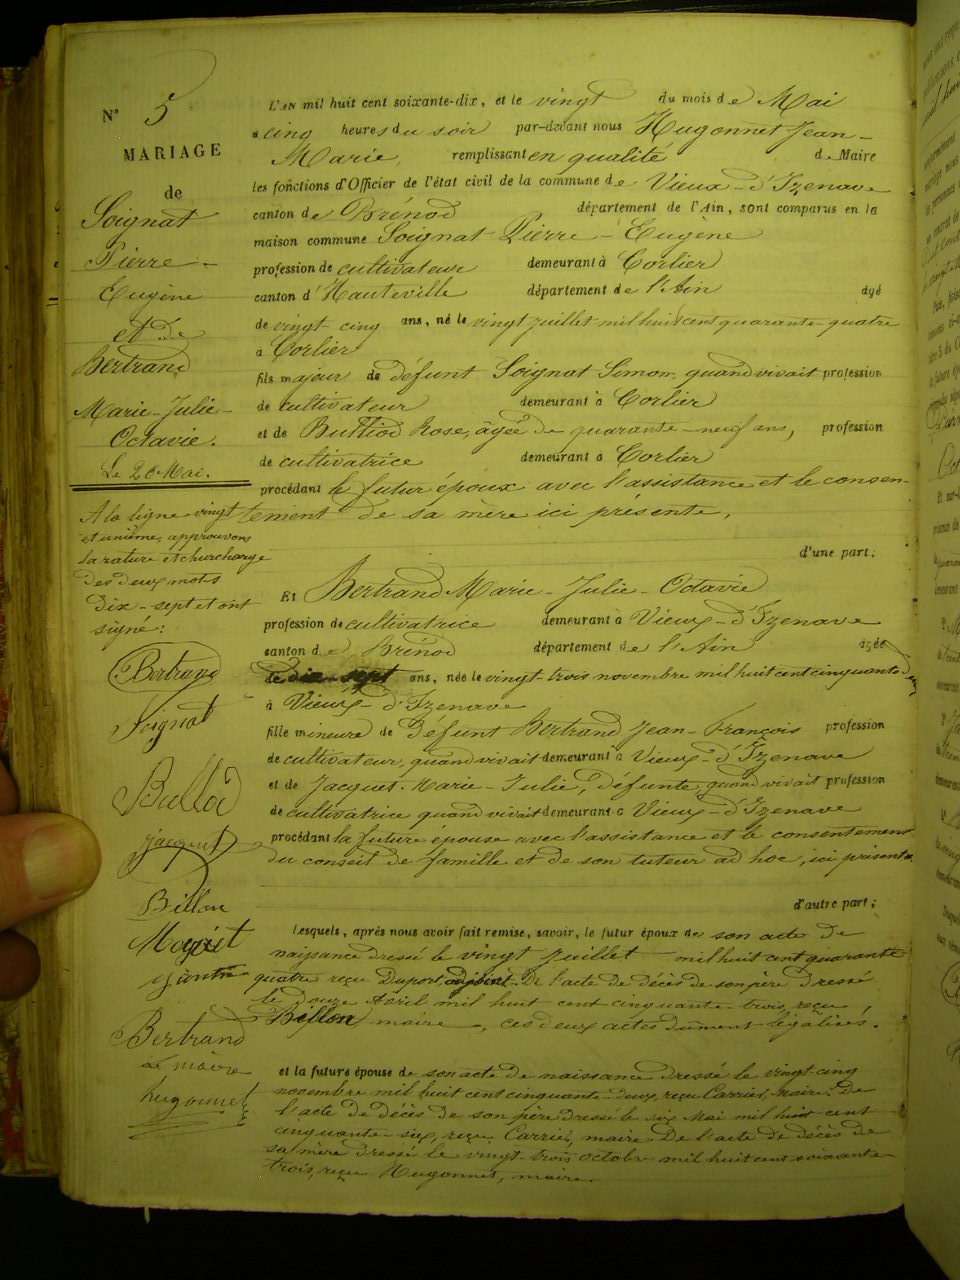 N° 5
MARIAGE
de
Soignat
Pierre -
Eugène
et de
Bertrand
Marie-Julie-
Octavie.
Le 20 Mai.
A la ligne vingt
et unième, approuvons
la rature et
des deux mots
dix-sept et ont
signé:
Bertrand
Soignat
jacquet
Billon
Bertrand
Le maire
hugonnet
L'AN mil huit cent soixante-dix, et le vingt du mois de Mai
à cinq heures du soir par-devant nous Hugonnet Jean-
Marie, remplissant en qualité de Maire
les fonctions d'Officier de l'état civil de la commune de Vieux-d'Izenave
canton de Brénod département de l'Ain, sont comparus en la
maison commune Soignat Pierre-Eugène
profession de cultivateur demeurant à Corlier
canton d'Hauteville département de l'Ain âgé
de vingt-cinq ans, né le vingt juillet mil huit cent quarante-quatre
à Corlier
fils majeur de défunt Soignat Simon, quand vivait profession
de cultivateur demeurant à Corlier
et de Rose, âgée de quarante-neuf ans, profession
de cultivatrice demeurant à Corlier
procédant le futur époux avec l'assistance et le consen-
tement de sa mère ici présente,
d'une part;
Et Bertrand Marie-Julie-Octavie
profession de cultivatrice demeurant à Vieux-d'Izenave
canton de Brénod département de l'Ain âgée
de dix-sept ans, née le vingt-trois novembre mil huit cent cinquante-deux
à Vieux-d'Izenave
fille mineure de Défunt Bertrand Jean-François profession
de cultivateur, quand vivait demeurant à Vieux-d'Izenave
et de Jacquet Marie-Julie, défunte, quand vivait profession
de cultivatrice quand vivait demeurant à Vieux-d'Izenave
procédant la future épouse avec l'assistance et le consentement
du conseil de famille et de son tuteur ad hoc, ici présents.
d'autre part;
Lesquels, après nous avoir fait remise, savoir, le futur époux de son acte de
naissance dressé le vingt juillet mil huit cent quarante
quatre reçu Duport, adjoint. De l'acte de décès de son père dressé
le douze Avril mil huit cent cinquante-trois, reçu
Billon maire, ces deux actes dûment légalisés.
et la future épouse de son acte de naissance dressé le vingt-cinq
novembre mil huit cent cinquante-deux, reçu Carrier, maire. De
l'acte de décès de son père dressé le six Mai mil huit cent
cinquante-six, reçu Carrier, maire. De l'acte de décès de
sa mère dressé le vingt-trois octobre mil huit cent soixante-
trois, reçu Hugonnet, maire.